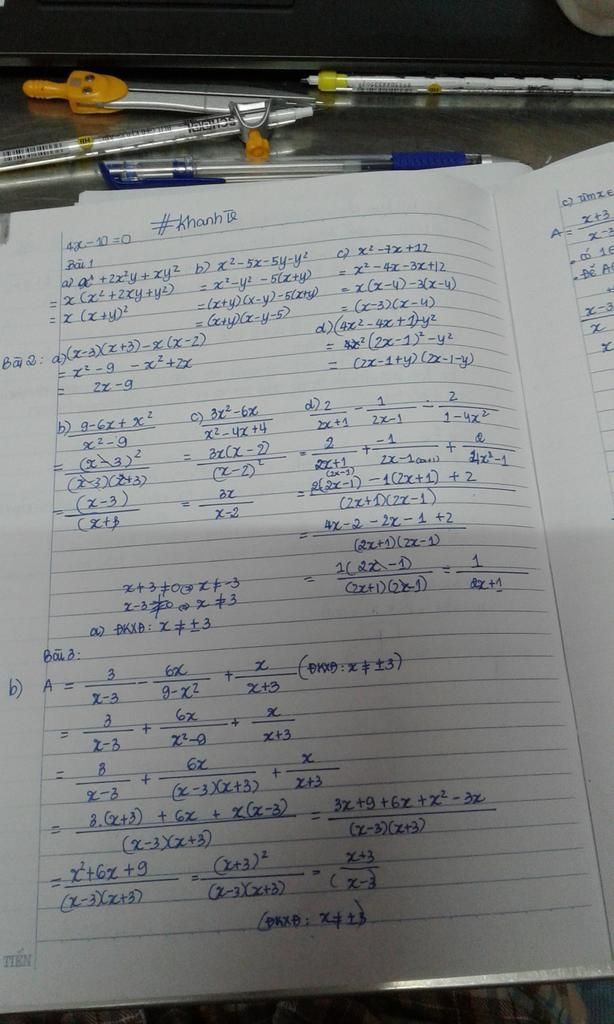 #Khanhte
4x-10=0
Bài 1
a) x³ + 2x²y + xy²
= x (x² + 2xy + y²)
= x (x+y)²
b) x² - 5x - 5y - y²
= x² - y² - 5(x+y)
= (x+y)(x-y) - 5(x+y)
= (x+y)(x-y-5)
c) x² - 7x + 12
= x² - 4x - 3x + 12
= x(x-4) - 3(x-4)
= (x-3)(x-4)
d) (4x² - 4x + 1) - y²
= (2x-1)² - y²
= (2x-1+y)(2x-1-y)
Bài 2: a) (x-3)(x+3) - x(x-2)
= x² - 9 - x² + 2x
= 2x - 9
b) 9-6x+x² / x²-9
= (x-3)² / (x-3)(x+3)
= (x-3) / (x+3
c) 3x²-6x / x²-4x+4
= 3x(x-2) / (x-2)²
= 3x / x-2
d) 2 / 2x+1 - 1 / 2x-1 - 2 / 1-4x²
= 2 / 2x+1 (2x-1) + -1 / 2x-1 (2x+1) + 2 / 4x²-1
= 2(2x-1) - 1(2x+1) + 2 / (2x+1)(2x-1)
= 4x-2-2x-1+2 / (2x+1)(2x-1)
= 1(2x-1) / (2x+1)(2x-1) = 1 / 2x+1
x+3≠0 ⇔ x≠-3
x-3≠0 ⇔ x≠3
a) ĐKXĐ: x≠±3
Bài 3:
b) A = 3 / x-3 - 6x / 9-x² + x / x+3 (ĐKXĐ: x≠±3)
= 3 / x-3 + 6x / x²-9 + x / x+3
= 3 / x-3 + 6x / (x-3)(x+3) + x / x+3
= 3.(x+3) + 6x + x(x-3) / (x-3)(x+3) = 3x+9+6x+x²-3x / (x-3)(x+3)
= x²+6x+9 / (x-3)(x+3) = (x+3)² / (x-3)(x+3) = x+3 / (x-3
(ĐKXĐ: x≠±3
TIẾN
c) Tìm x ∈
A = x+3 / x-3
Để A
x-3 / x
x